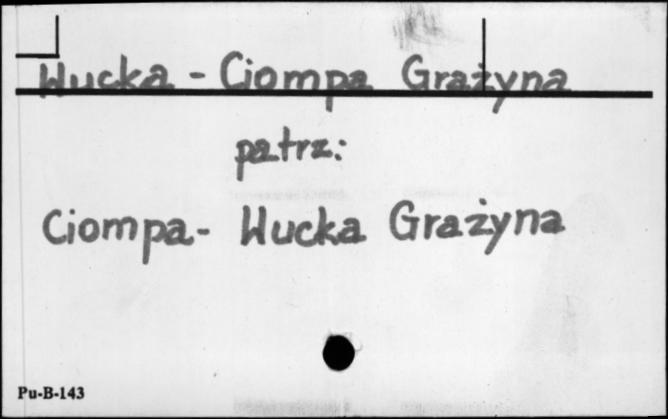 Wucka - Ciompa Grażyna
patrz:
Ciompa- Wucka Grażyna
Pu-B-143